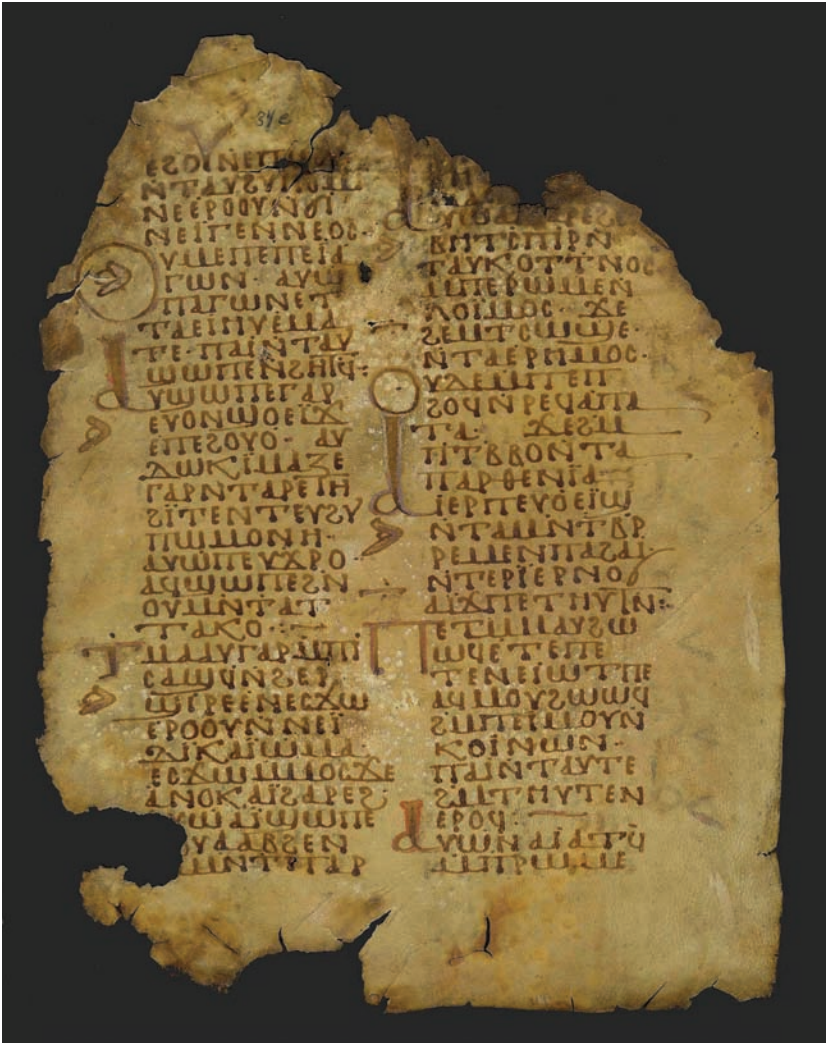 ⲛⲉⲉⲣⲟⲟⲩⲛϭⲓ
ⲛⲉⲓⲅⲉⲛⲛⲉⲟⲥ·
ⲩⲙⲉⲡⲉⲡⲉⲓⲁ
ⲅⲱⲛ· ⲁⲩⲱ
ⲡⲁⲅⲱⲛⲉⲧ
ⲧⲁⲉⲓⲏⲩⲉⲙⲁ
ⲧⲉ·ⲡⲁⲓⲛⲧⲁⲩ
ϣⲱⲡⲉⲛϩⲏⲧϥ:
ⲁⲩϣⲱⲡⲉⲅⲁⲣ
ⲉⲩⲟⲛϣⲟⲉⲓϫ
ⲉⲡⲉϩⲟⲩⲟ· ⲁⲩ
ⲇⲱⲕⲓⲙⲁⲍⲉ
ⲅⲁⲣⲛⲧⲁⲣⲉⲧⲏ
ϩⲓⲧⲉⲛⲧⲉⲩϩⲩ
ⲡⲱⲙⲟⲛⲏ·
ⲁⲩⲱⲡⲉⲩϫⲣⲟ
ⲁϥϣⲱⲡⲉϩⲛ
ⲟⲩⲙⲛⲧⲁⲧ
ⲧⲁⲕⲟ·:
ⲧⲙⲁⲁⲩⲅⲁⲣⲙⲡⲓ
ⲥⲁϣϥⲛϩⲉⲣ
ϣⲓⲣⲉⲉⲛⲉⲥϫⲱ
ⲉⲣⲟⲟⲩⲛⲛⲉⲓ
ⲇⲓⲕⲁⲓⲱⲙⲁ·
ⲉⲥϫⲱⲙⲙⲟⲥϫⲉ
ⲁⲛⲟⲕⲁⲓϩⲁⲣⲉϩ
ⲁⲓϣⲱⲡⲉ
ⲟⲩⲁⲁⲃϩⲉⲛ
ⲙⲛⲧⲡⲁⲣ
ⲃⲏⲧⲥⲡⲓⲣⲛ
ⲧⲁⲩⲕⲟⲧϥⲛⲟⲥ
ⲙⲡⲉⲣⲱⲙⲉⲛ
ⲗⲟⲓⲙⲟⲥ· ϫⲉ
ϩⲉⲙⲧⲥⲱϣⲉ·
ⲛⲧⲁⲉⲣⲏⲙⲟⲥ·
ⲟⲩⲇⲉⲙⲡⲉⲡ
ϩⲟϥⲛⲣⲉϥⲁⲡⲁ
ⲧⲁ· ϫⲉϩⲙ
ⲡⲧⲃⲃⲟⲛⲧⲁ
ⲡⲁⲣⲑⲉⲛⲓⲁ
ⲁⲓⲉⲣⲡⲉⲩⲟⲉⲓϣ
ⲛⲧⲁⲙⲛⲧⲃⲣ
ⲣⲉⲙⲉⲛⲡⲁϩⲁⲓ·
ⲛⲧⲉⲣⲓⲉⲣⲛⲟϭ
ⲁⲓϫⲡⲉⲧⲏⲩⲧⲛ:
ⲡⲉⲧⲙⲙⲁⲩϩⲱ
ⲱϥⲉⲧⲉⲡⲉ
ⲧⲉⲛⲉⲓⲱⲧⲡⲉ
ⲁϥⲙⲟⲩϩⲱⲱϥ
ϩⲙⲡⲉⲓⲙⲟⲩⲛ
ⲕⲟⲓⲛⲱⲛ·
ⲡⲁⲓⲛⲧⲁⲩⲧⲉ
ϩⲙⲧⲏⲩⲧⲉⲛ
ⲉⲣⲟϥ·
ⲁⲩⲱⲛⲁⲓⲁⲧϥ
ⲙⲡⲣⲱⲙⲉ